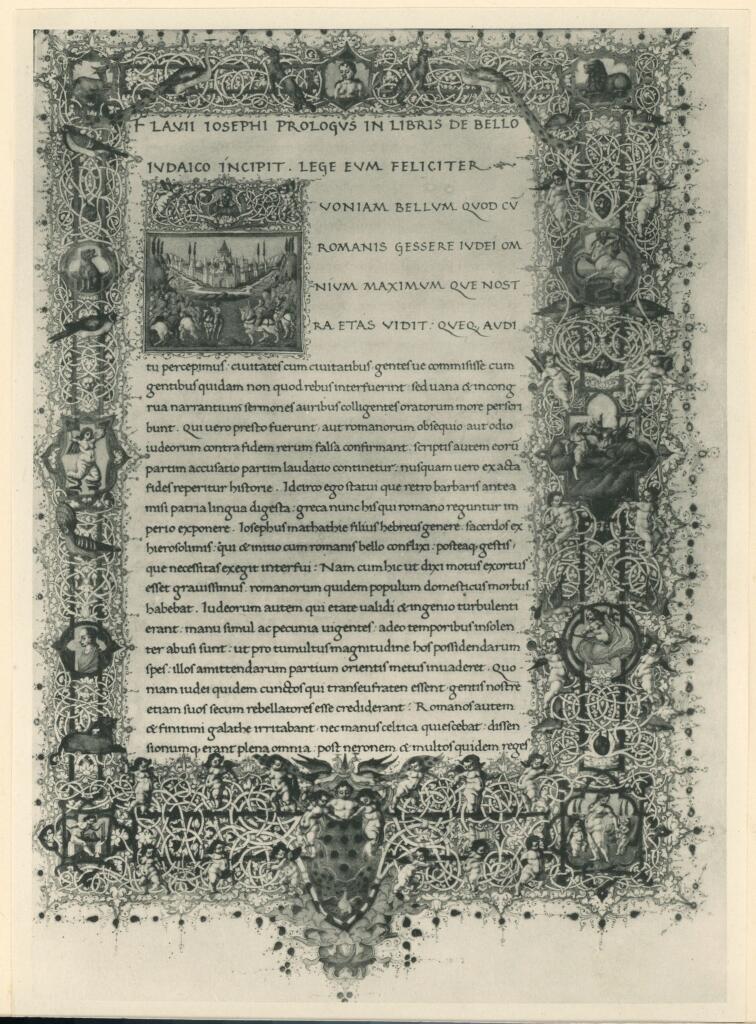 FLAVII IOSEPHI PROLOGVS IN LIBRIS DE BELLO
IVDAICO INCIPIT . LEGE EVM FELICITER
VONIAM BELLVM QVOD CŪ
ROMANIS GESSERE IVDEI OM
NIVM MAXIMVM QVE NOST
RA ETAS VIDIT : QVEQ, AVDI
tu percepimus : civitates cum civitatibus gentes ve commisisse cum
gentibus quidam non quod rebus interfuerint sed vana & incong
rua narrantium sermones auribus colligentes oratorum more perscri
bunt . Qui vero presto fuerunt aut romanorum obsequio aut odio
iudeorum contra fidem rerum falsa confirmant . scriptis autem eorū
partim accusatio partim laudatio continetur : nusquam vero exacta
fides reperitur historie . Idcirco ego statui que retro barbaris antea
misi patria lingua digesta : greca nunc his qui romano reguntur im
perio exponere . Iosephus mathathie filius hebreus genere sacerdos ex
hierosolimis : qui & initio cum romanis bello conflixi : posteaq, gestis
que necessitas exegit interfui : Nam cum hic ut dixi motus exortus
esset gravissimus . romanorum quidem populum domesticus morbus
habebat . Iudeorum autem qui etate validi & ingenio turbulenti
erant . manu simul ac pecunia vigentes : adeo temporibus insolen
ter abusi sunt : ut pro tumultus magnitudine hos possidendarum
spes . illos amittendarum partium orientis metus invaderet . Quo
niam iudei quidem cunctos qui trans eufraten essent gentis nostre
etiam suos secum rebellatores esse crediderant : Romanos autem
& finitimi galathe irritabant . nec manus celtica quiescebat : dissen
sionumq, erant plena omnia . post neronem & multos quidem reges